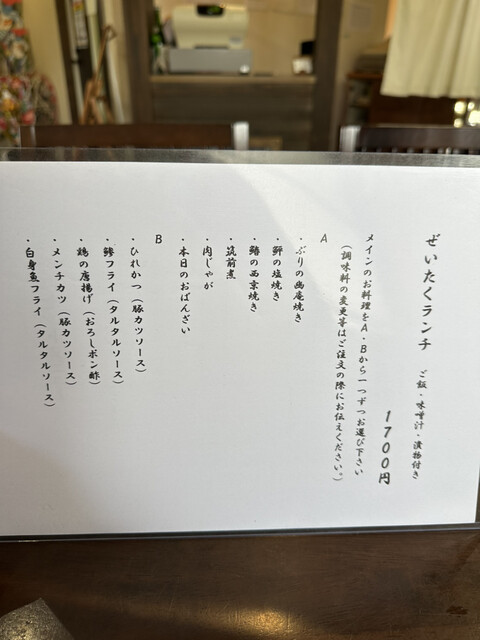 ぜいたくランチ　ご飯・味噌汁・漬物付き
1700円
メインのお料理をA・Bから一つずつお選び下さい
（調味料の変更等はご注文の際にお伝えください。）
A
・ぶりの幽庵焼き
・鮃の塩焼き
・鰆の西京焼き
・筑前煮
・肉じゃが
・本日のおばんざい
B
・ひれかつ（豚カツソース）
・鯵フライ（タルタルソース）
・鶏の唐揚げ（おろしポン酢）
・メンチカツ（豚カツソース）
・白身魚フライ（タルタルソース）